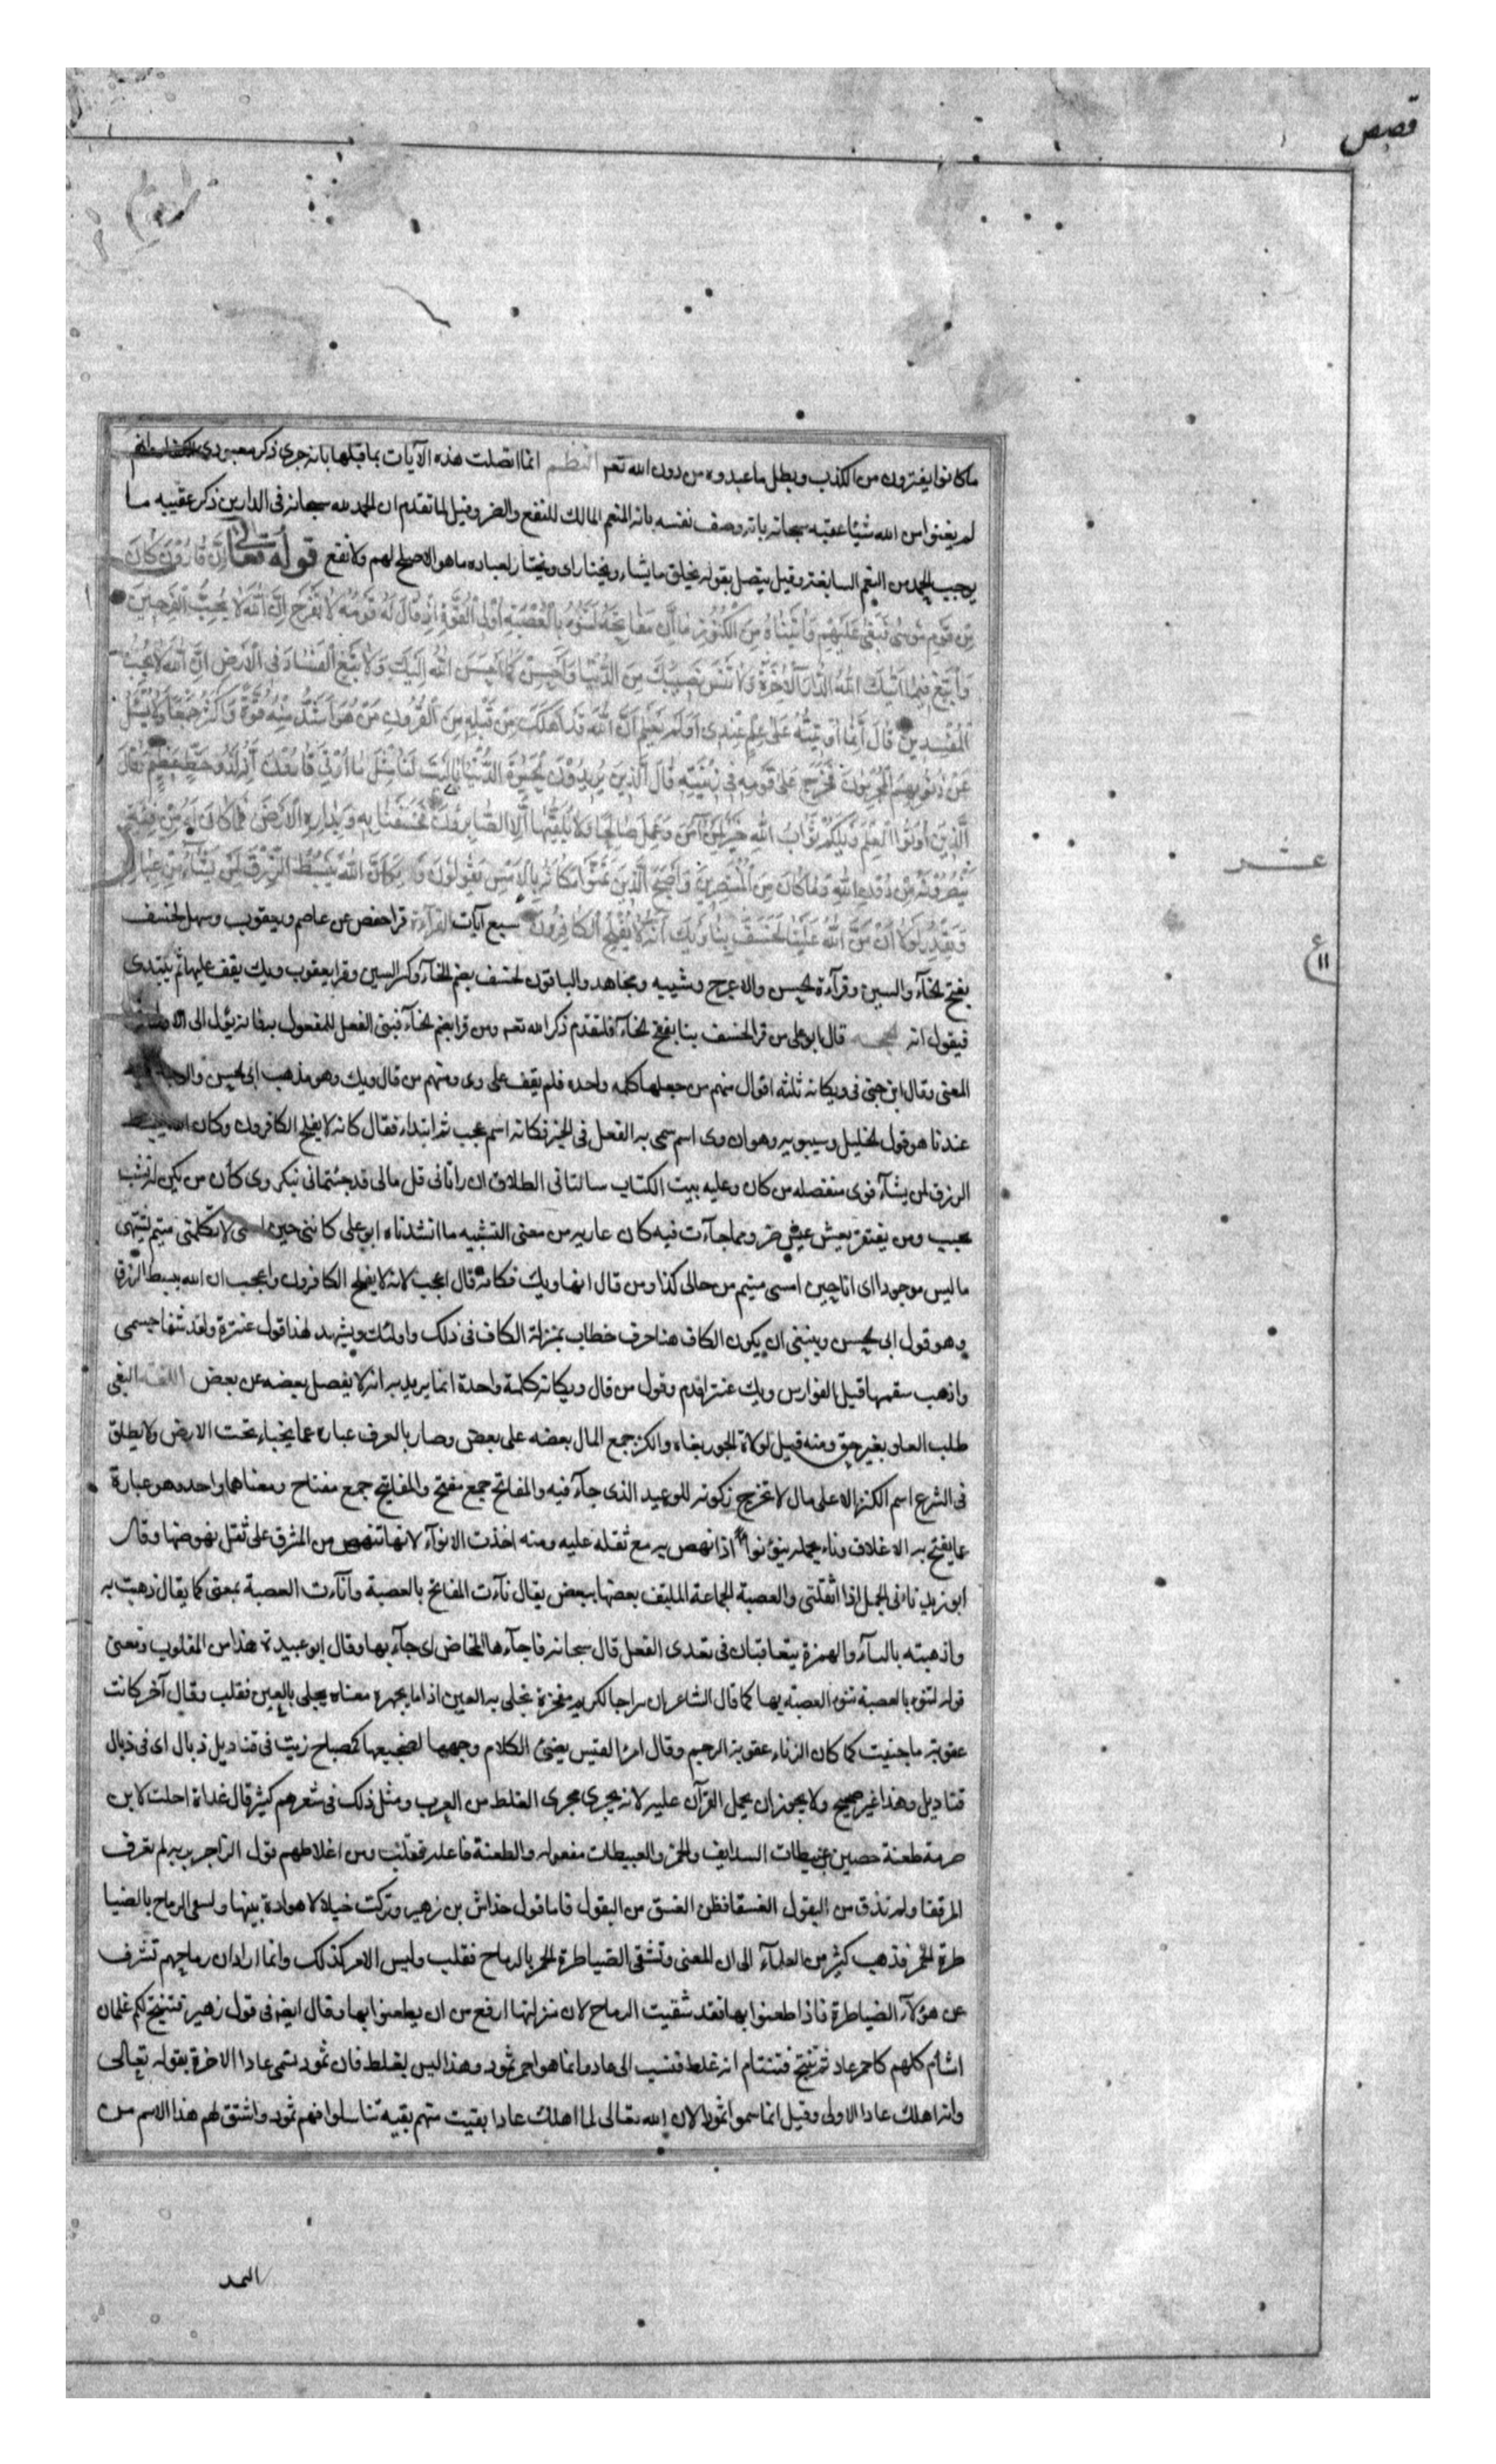 قصص
ماكانوا يفترون من الكذب وبطل ما عبدوه من دون الله تعم النظم انما اتصلت هذه الآيات بما قبلها بانه جرى ذكر معبودى
لم يغنوا من الله شيئا عقبه سبحانه بانه وصف نفسه بانه المنعم المالك للنفع والضر وقيل لما تقدم ان الحمد لله سبحانه فى الدارين ذكر عقيبه ما
يوجب الحمد من النعم السابغة وقيل يتصل بقوله يخلق ما يشاء ويختار اى ويختار لعباده ما هو الاصلح لهم ولانفع قوله تعالى اِنَّ قَارُونَ كَانَ
مِنْ قَوْمِ مُوسَى فَبَغَى عَلَيْهِمْ وَآتَيْنَاهُ مِنَ الْكُنُوزِ مَا اِنَّ مَفَاتِحَهُ لَتَنُوءُ بِالْعُصْبَةِ اُولِى الْقُوَّةِ اِذْ قَالَ لَهُ قَوْمُهُ لَا تَفْرَحْ اِنَّ اللهَ لَا يُحِبُّ الْفَرِحِينَ
وَابْتَغِ فِيمَا آتَيكَ اللهُ الدَّارَ الْآخِرَةَ وَلَا تَنْسَ نَصِيبَكَ مِنَ الدُّنْيَا وَاَحْسِنْ كَمَا اَحْسَنَ اللهُ اِلَيْكَ وَلَا تَبْغِ الْفَسَادَ فِى الْاَرْضِ اِنَّ اللهَ لَا يُحِبُّ
الْمُفْسِدِينَ قَالَ اِنَّمَا اُوتِيتُهُ عَلَى عِلْمٍ عِنْدِى اَوَلَمْ يَعْلَمْ اَنَّ اللهَ قَدْ اَهْلَكَ مِنْ قَبْلِهِ مِنَ الْقُرُونِ مَنْ هُوَ اَشَدُّ مِنْهُ قُوَّةً وَاَكْثَرُ جَمْعًا وَلَا يُسْئَلُ
عَنْ ذُنُوبِهِمُ الْمُجْرِمُونَ فَخَرَجَ عَلَى قَوْمِهِ فِى زِينَتِهِ قَالَ الَّذِينَ يُرِيدُونَ الْحَيوةَ الدُّنْيَا يَا لَيْتَ لَنَا مِثْلَ مَا اُوتِىَ قَارُونُ اِنَّهُ لَذُو حَظٍّ عَظِيمٍ وَقَالَ
الَّذِينَ اُوتُوا الْعِلْمَ وَيْلَكُمْ ثَوَابُ اللهِ خَيْرٌ لِمَنْ آمَنَ وَعَمِلَ صَالِحًا وَلَا يُلَقَّيهَا اِلَّا الصَّابِرُونَ فَخَسَفْنَا بِهِ وَبِدَارِهِ الْاَرْضَ فَمَا كَانَ لَهُ مِنْ فِئَةٍ
يَنْصُرُونَهُ مِنْ دُونِ اللهِ وَمَا كَانَ مِنَ الْمُنْتَصِرِينَ وَاَصْبَحَ الَّذِينَ تَمَنَّوْا مَكَانَهُ بِالْاَمْسِ يَقُولُونَ وَيْكَاَنَّ اللهَ يَبْسُطُ الرِّزْقَ لِمَنْ يَشَاءُ مِنْ عِبَادِهِ
عشر
وَيَقْدِرُ لَوْلَا اَنْ مَنَّ اللهُ عَلَيْنَا لَخَسَفَ بِنَا وَيْكَاَنَّهُ لَا يُفْلِحُ الْكَافِرُونَ سبع آيات القراءة قرا حفص عن عاصم ويعقوب وسهل لخسف
ع ١١
بفتح الخآء والسين وقرآءة الحسن والاعرج وشيبه ومجاهد والباقون لخسف بضم الخآء وكسر السين وقرا يعقوب ويك يقف عليها ثم يبتدى
فيقول انه الحجه قال ابو على من قرا لخسف بنا بفتح الخآء فلتقدم ذكر الله تعم ومن قرا بضم الخآء فبنى الفعل للمفعول به فانه يؤل الى الاول فى
المعنى وقال ابن جنى فى ويكانه ثلثة اقوال منهم من جعلها كلمه واحده فلم يقف على وى ومنهم من قال ويك وهو مذهب ابى الحسن والوجه فيه
عندنا هو قول الخليل وسيبويه وهو ان وى اسم سمى به الفعل فى الخبر فكانه اسم عجب ثم ابتداء فقال كانه لا يفلح الكافرون وكان الله يبسط
الرزق لمن يشآء فوى منفصله من كان وعليه بيت الكتاب سالتانى الطلاق ان راتانى قل مالى قد جئتمانى بنكر وى كأن من يكن له نشب
يحبب ومن يفتقر يعش عيش ضر ومما جآءت فيه كان عارية من معنى التشبيه ما انشدناه ابو على كاننى حين امسى لا تكلمنى متيم يشتهى
ما ليس موجودا اى انا حين امسى متيم من حالى كذا ومن قال انها ويك فكانه قال اعجب لانه لا يفلح الكافرون واعجب ان الله يبسط الرزق
وهو قول ابى الحسن وينبغى ان يكون الكاف هنا حرف خطاب بمنزلة الكاف فى ذلك واولئك ويشهد لهذا قول عنترة ولقد شفا جسمى
واذهب سقمها قيل الفوارس ويك عنتر اقدم وقول من قال ويكانه كلمة واحدة انما يريد به انه لا يفصل بعضه عن بعض اللغة البغى
طلب العلو بغير حق ومنه قيل لولاة الجور بغاه والكنز جمع المال بعضه على بعض وصار بالعرف عباره عما يخباء تحت الارض ولا يطلق
فى الشرع اسم الكنز الا على مال لا تخرج زكوته للوعيد الذى جآء فيه والمفاتح جمع مفتح والمفاتيح جمع مفتاح ومعناهما واحد وهو عبارة
عما يفتح به الاغلاق وناء بحمله ينوء نوأ اذا نهض به مع ثقله عليه ومنه اخذت الانوآء لانها تنهض من المشرق على ثقل نهوضها وقال
ابو زيد ناءنى الحمل اذا اثقلنى والعصبة الجماعة الملتف بعضها ببعض يقال نآءت المفاتح بالعصبة وآناءت العصبة بمعنى كما يقال ذهبت به
واذهبته بالبآء والهمزة يتعاقبان فى تعدى الفعل قال سبحانه فاجآءها المخاض اى جآء بها وقال ابو عبيدة هذا من المقلوب ومعنى
قوله لتنوء بالعصبة تنوء العصبة بها كما قال الشاعر ان سراجا لكريم مفخرة تجلى به العين اذا ما يجهره معناه يجلى بالعين فقلب وقال آخر كانت
عقوبة ما جنيت كما كان الزناء عقوبة الرجم وقال امرا القيس يضئ الكلام وجهها لضجيعها كمصباح زيت فى قناديل ذبال اى فى ذبال
قناديل وهذا غير صحيح ولا يجوز ان يحمل القرآن عليه لانه يجرى مجرى الغلط من العرب ومثل ذلك فى شعرهم كثير قال غداة احلت لابن
صرمة طعنة حصين عبيطات السدايف والخمر والعبيطات مفعوله والطعنة فاعله فقلب ومن اغلاطهم قول الراجز برية لم تعرف
المرققا ولم تذق من البقول الفستقا فظن الفستق من البقول فاما قول خداش بن زهير وتركت خيلا لا هوادة بينها ولسعى الرماح بالضيا
طرة الحمر فذهب كثير من العلمآء الى ان المعنى وتشقى الضياطرة الحمر بالرماح فقلب وليس الامر كذلك وانما اراد ان رماحهم تشرف
عن هؤلآء الضياطرة فاذا طعنوا بها فقد شقيت الرماح لان منزلتها ارفع من ان يطعنوا بها وقال ايضا فى قول زهير فتنتج لكم غلمان
اشأم كلهم كاحمر عاد ثم تنتج فتتئام انه غلط فنسب الى عاد وانما هو احمر ثمود وهذا ليس بغلط فان ثمود تسمى عادا الاخرة بقوله تعالى
وانه اهلك عادا الاولى وقيل انما سموا ثمود لان الله تعالى لما اهلك عادا بقيت منهم بقيه تناسلوا فهم ثمود واشتق لهم هذا الاسم من
الثمد